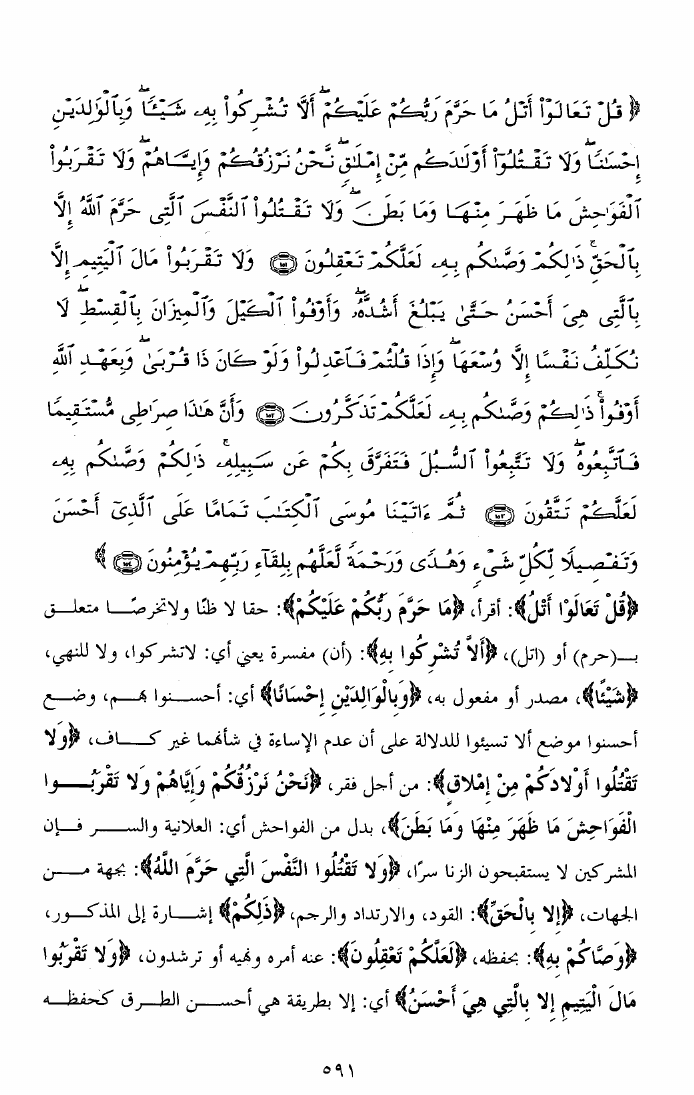 ﴿ قُلْ تَعَالَوْا۟ أَتْلُ مَا حَرَّمَ رَبُّكُمْ عَلَيْكُمْ ۖ أَلَّا تُشْرِكُوا۟ بِهِۦ شَيْـًٔا ۖ وَبِٱلْوَٰلِدَيْنِ
إِحْسَٰنًا ۖ وَلَا تَقْتُلُوٓا۟ أَوْلَٰدَكُم مِّنْ إِمْلَٰقٍ ۖ نَّحْنُ نَرْزُقُكُمْ وَإِيَّاهُمْ ۖ وَلَا تَقْرَبُوا۟
ٱلْفَوَٰحِشَ مَا ظَهَرَ مِنْهَا وَمَا بَطَنَ ۖ وَلَا تَقْتُلُوا۟ ٱلنَّفْسَ ٱلَّتِى حَرَّمَ ٱللَّهُ إِلَّا
بِٱلْحَقِّ ۚ ذَٰلِكُمْ وَصَّىٰكُم بِهِۦ لَعَلَّكُمْ تَعْقِلُونَ ﴿١٥١﴾ وَلَا تَقْرَبُوا۟ مَالَ ٱلْيَتِيمِ إِلَّا
بِٱلَّتِى هِىَ أَحْسَنُ حَتَّىٰ يَبْلُغَ أَشُدَّهُۥ ۖ وَأَوْفُوا۟ ٱلْكَيْلَ وَٱلْمِيزَانَ بِٱلْقِسْطِ ۖ لَا
نُكَلِّفُ نَفْسًا إِلَّا وُسْعَهَا ۖ وَإِذَا قُلْتُمْ فَٱعْدِلُوا۟ وَلَوْ كَانَ ذَا قُرْبَىٰ ۖ وَبِعَهْدِ ٱللَّهِ
أَوْفُوا۟ ۚ ذَٰلِكُمْ وَصَّىٰكُم بِهِۦ لَعَلَّكُمْ تَذَكَّرُونَ ﴿١٥٢﴾ وَأَنَّ هَٰذَا صِرَٰطِى مُسْتَقِيمًا
فَٱتَّبِعُوهُ ۖ وَلَا تَتَّبِعُوا۟ ٱلسُّبُلَ فَتَفَرَّقَ بِكُمْ عَن سَبِيلِهِۦ ۚ ذَٰلِكُمْ وَصَّىٰكُم بِهِۦ
لَعَلَّكُمْ تَتَّقُونَ ﴿١٥٣﴾ ثُمَّ ءَاتَيْنَا مُوسَى ٱلْكِتَٰبَ تَمَامًا عَلَى ٱلَّذِىٓ أَحْسَنَ
وَتَفْصِيلًا لِّكُلِّ شَىْءٍ وَهُدًى وَرَحْمَةً لَّعَلَّهُم بِلِقَآءِ رَبِّهِمْ يُؤْمِنُونَ ﴿١٥٤﴾ ﴾
﴿قُلْ تَعَالَوْا أَتْلُ﴾: أقرأ، ﴿مَا حَرَّمَ رَبُّكُمْ عَلَيْكُمْ﴾: حقا لا ظنًا ولاتخرصًا متعلق
بـ(حرم) أو (اتل)، ﴿أَلاَّ تُشْرِكُوا بِهِ﴾: (أن) مفسرة يعني أي: لاتشركوا، ولا للنهي،
﴿شَيْئًا﴾، مصدر أو مفعول به، ﴿وَبِالْوَالِدَيْنِ إِحْسَانًا﴾ أي: أحسنوا بهم، وضع
أحسنوا موضع ألا تسيئوا للدلالة على أن عدم الإساءة في شأنهما غير كاف، ﴿وَلا
تَقْتُلُوا أَوْلادَكُمْ مِنْ إِمْلاقٍ﴾: من أجل فقر، ﴿نَحْنُ نَرْزُقُكُمْ وَإِيَّاهُمْ وَلا تَقْرَبُوا
الْفَوَاحِشَ مَا ظَهَرَ مِنْهَا وَمَا بَطَنَ﴾، بدل من الفواحش أي: العلانية والسر فإن
المشركين لا يستقبحون الزنا سرًا، ﴿وَلا تَقْتُلُوا النَّفْسَ الَّتِي حَرَّمَ اللَّهُ﴾: بجهة من
الجهات، ﴿إِلا بِالْحَقِّ﴾: القود، والارتداد والرجم، ﴿ذَلِكُمْ﴾ إشارة إلى المذكور،
﴿وَصَّاكُمْ بِهِ﴾: بحفظه، ﴿لَعَلَّكُمْ تَعْقِلُونَ﴾: عنه أمره ونهيه أو ترشدون، ﴿وَلا تَقْرَبُوا
مَالَ الْيَتِيمِ إِلا بِالَّتِي هِيَ أَحْسَنُ﴾ أي: إلا بطريقة هي أحسن الطرق كحفظه
٥٩١